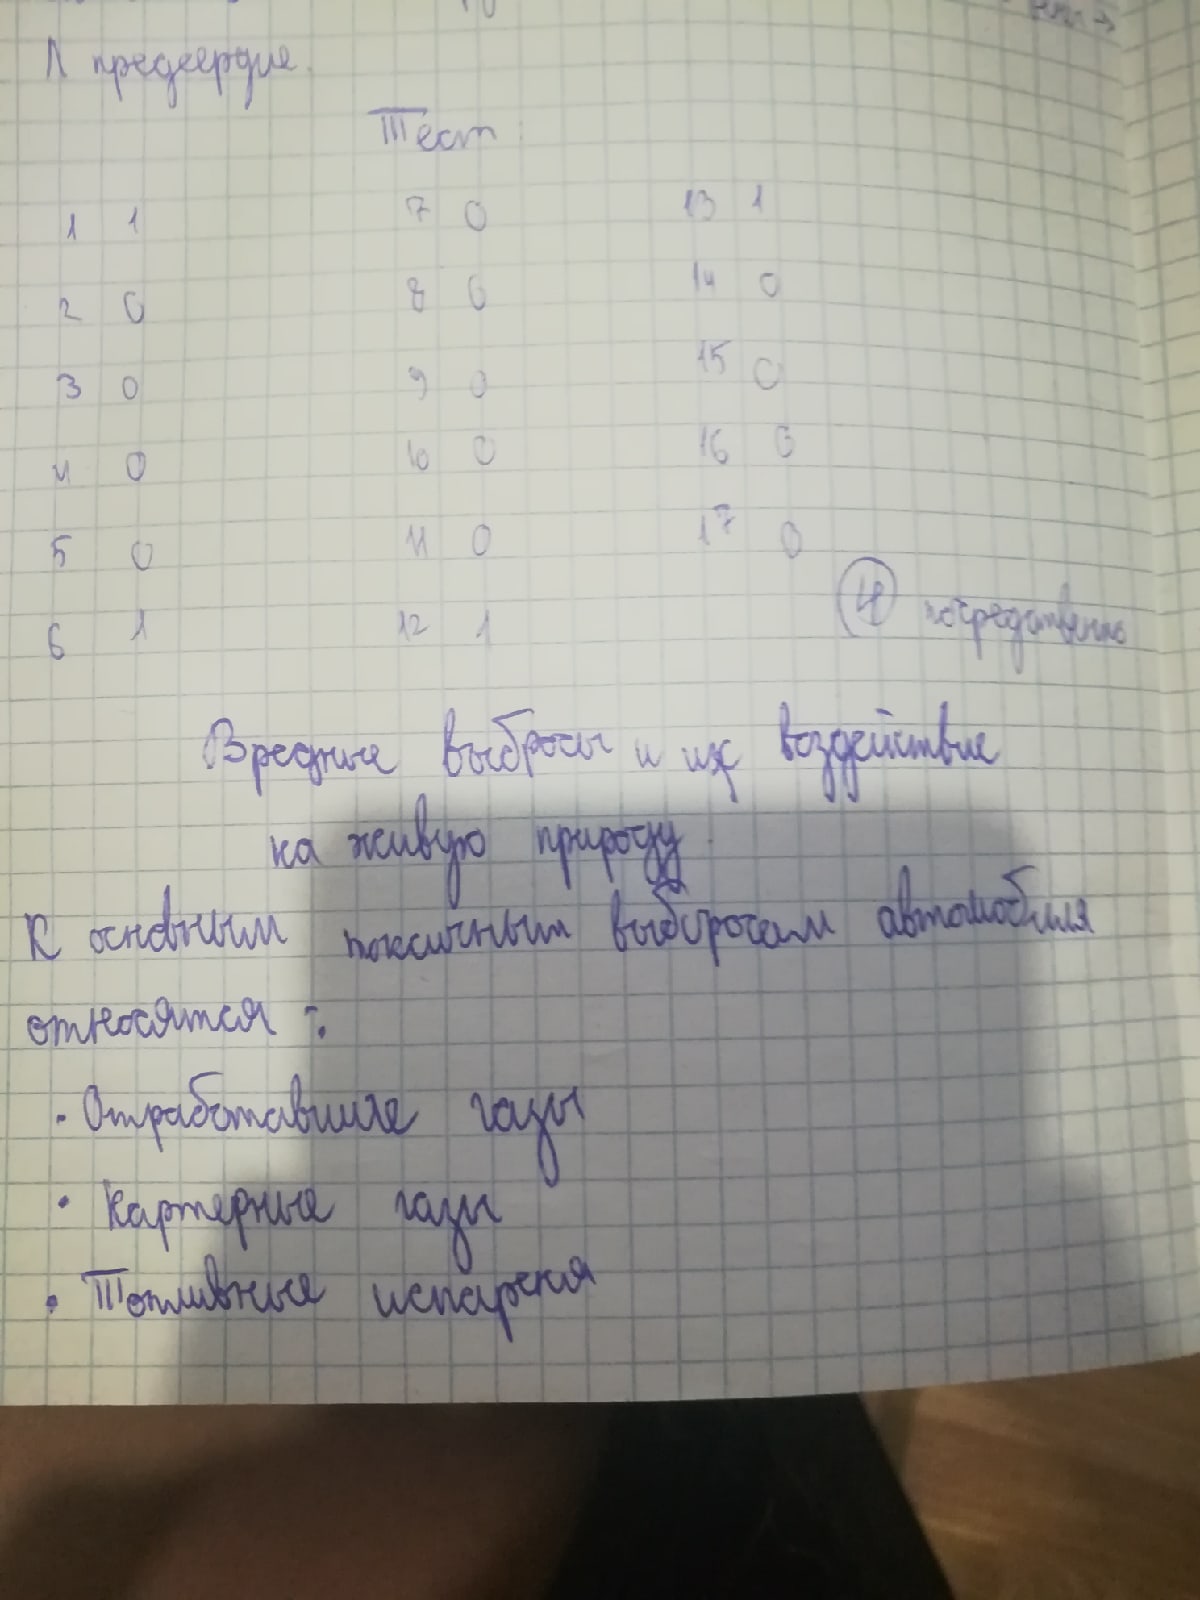 Л предсердие.
Тест
1 1 7 0 13 1
2 0 8 0 14 0
3 0 9 0 15 0
4 0 10 0 16 0
5 0 11 0 17 0
6 1 12 1 4 посредственно
Вредные выбросы и их воздействие
на живую природу.
К основным токсичным выбросам автомобиля
относятся:
· Отработавшие газы
· Картерные газы
· Топливные испарения